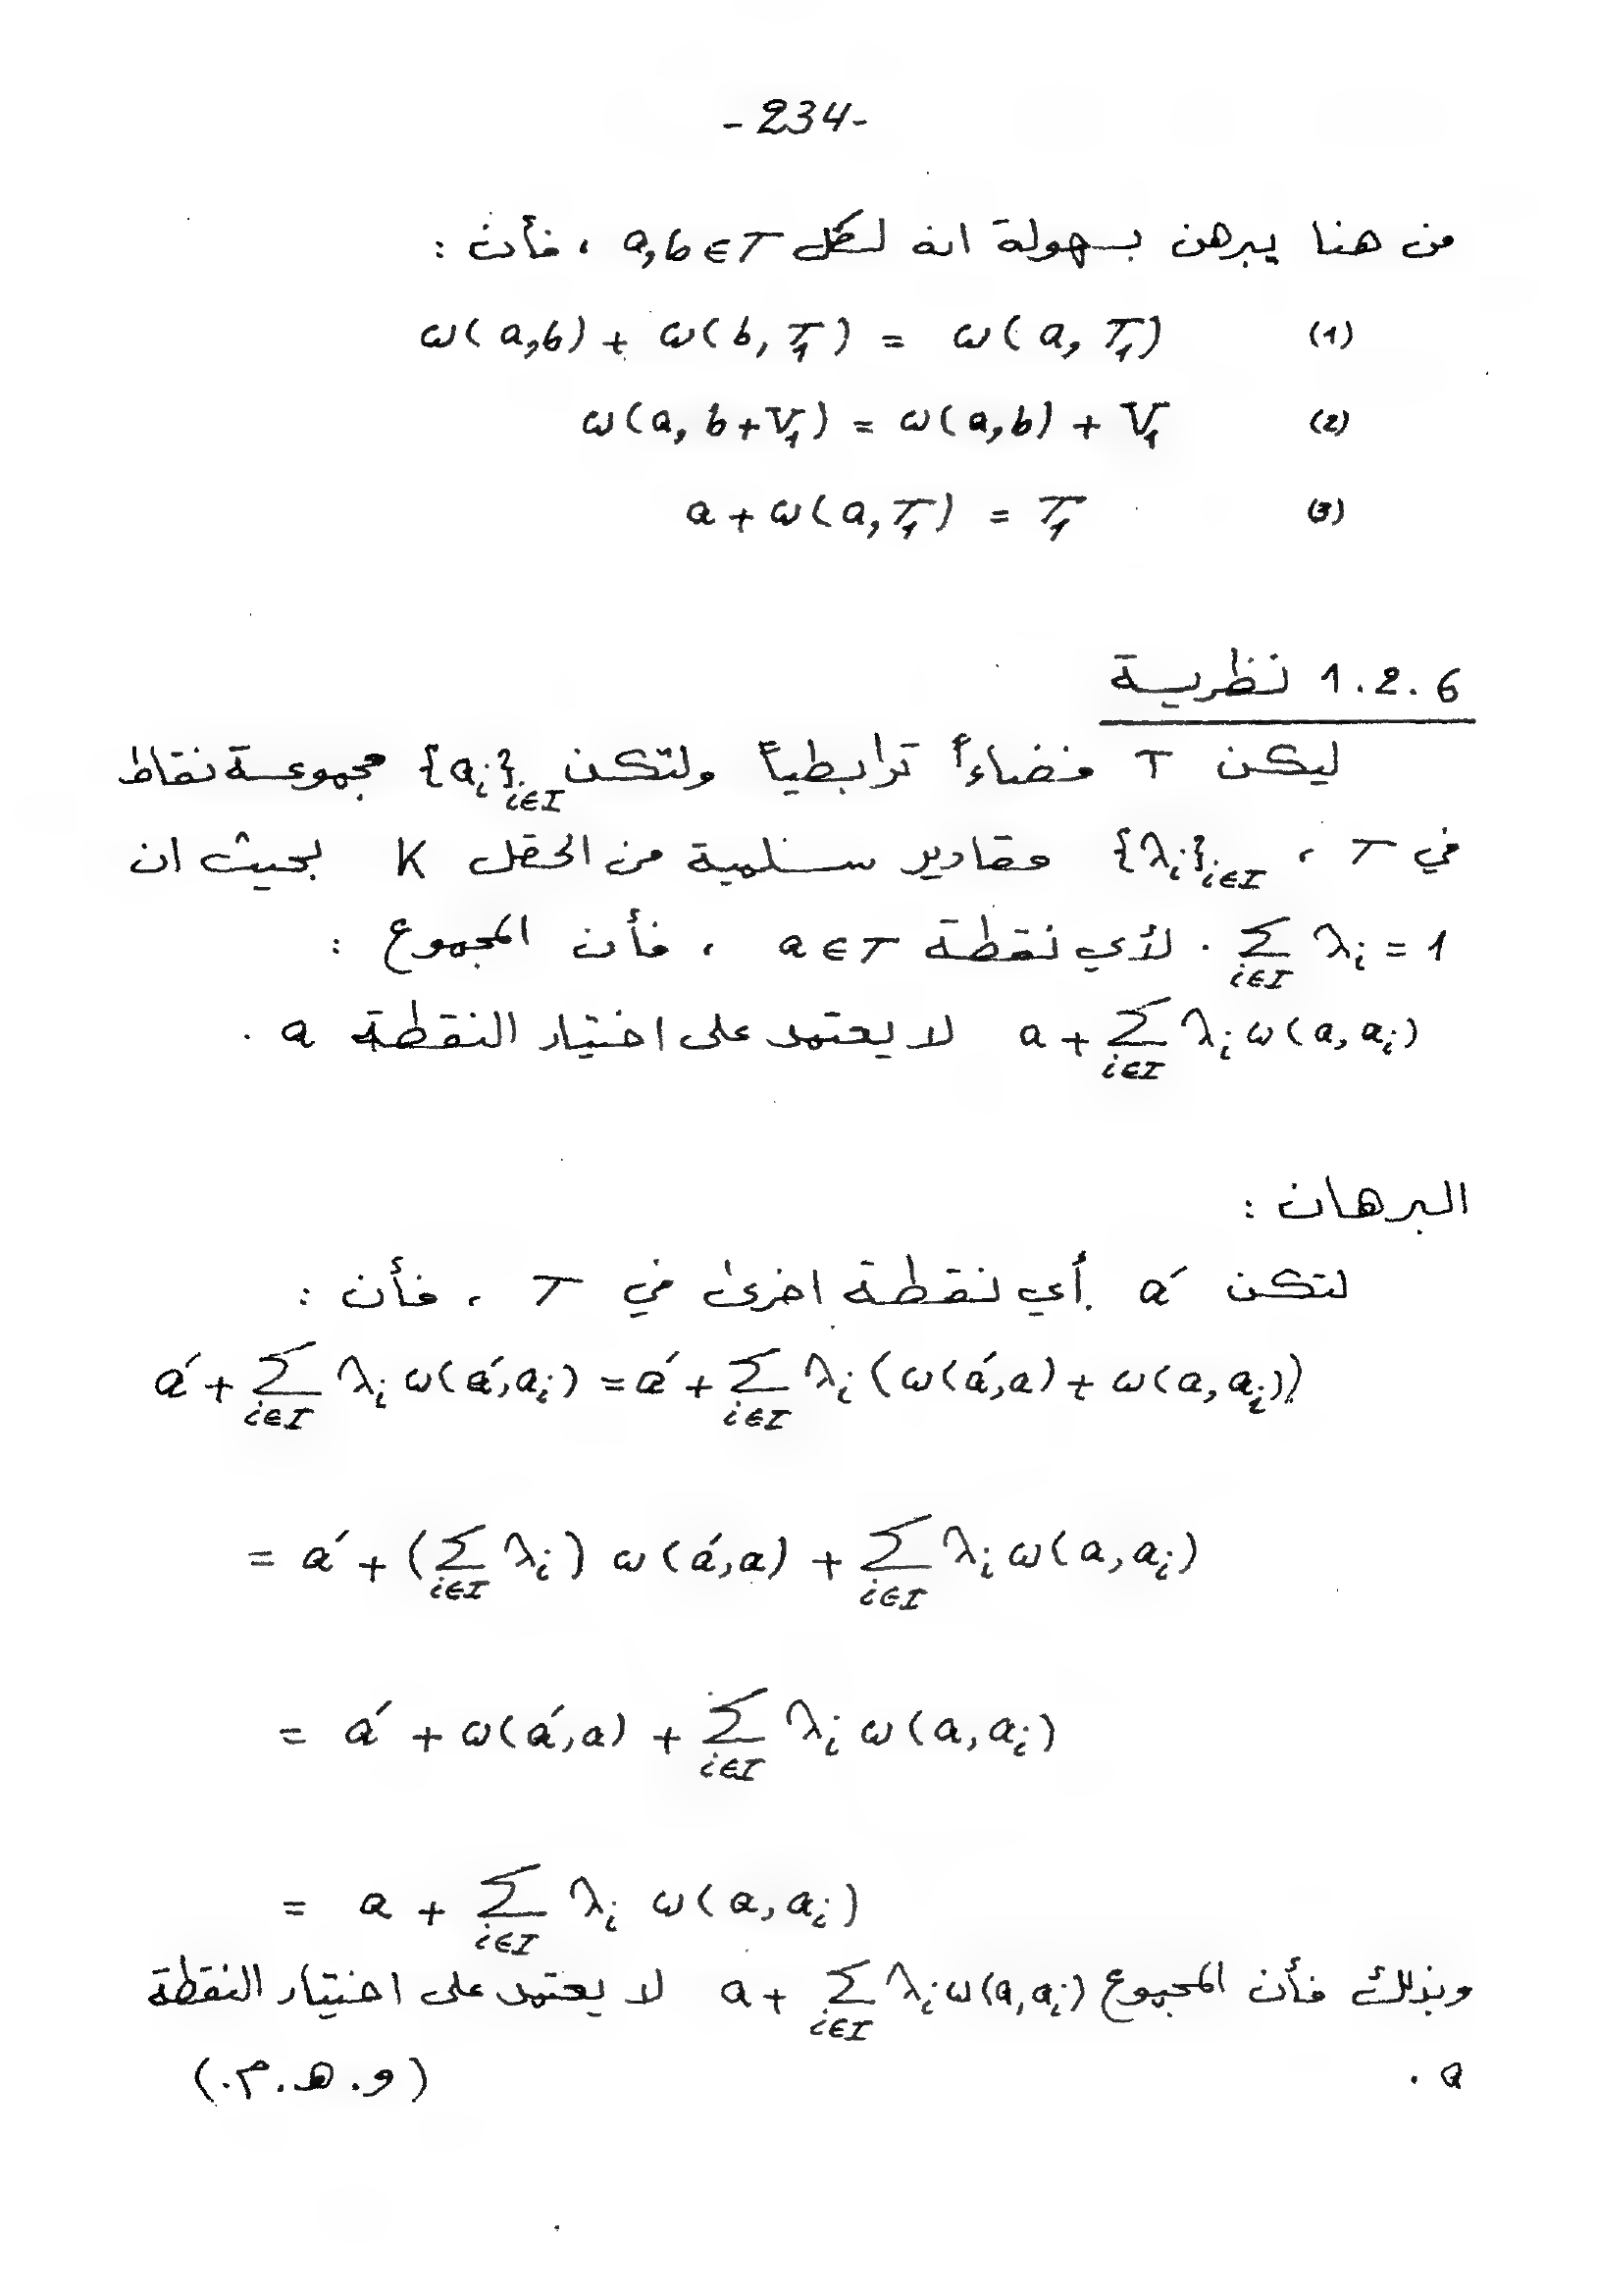 -234-
من هنا يبرهن بسهولة انه لكل a,b∈T ، فأن :
(1) ω(a,b) + ω(b,T₁) = ω(a,T₁)
(2) ω(a, b+V₁) = ω(a,b) + V₁
(3) a + ω(a,T₁) = T₁
1.2.6 نظرية
ليكن T فضاءاً ترابطياً ولتكن {aᵢ}ᵢ∈I مجموعة نقاط
في T ، {λᵢ}ᵢ∈I مقادير سلمية من الحقل K بحيث ان
∑ᵢ∈I λᵢ = 1 . لأي نقطة a∈T ، فأن المجموع :
a + ∑ᵢ∈I λᵢ ω(a,aᵢ) لا يعتمد على اختيار النقطة a .
البرهان :
لتكن a′ أي نقطة اخرى في T ، فأن :
a′ + ∑ᵢ∈I λᵢ ω(a′,aᵢ) = a′ + ∑ᵢ∈I λᵢ (ω(a′,a) + ω(a,aᵢ))
= a′ + (∑ᵢ∈I λᵢ) ω(a′,a) + ∑ᵢ∈I λᵢ ω(a,aᵢ)
= a′ + ω(a′,a) + ∑ᵢ∈I λᵢ ω(a,aᵢ)
= a + ∑ᵢ∈I λᵢ ω(a,aᵢ)
وبذلك فأن المجموع a + ∑ᵢ∈I λᵢ ω(a,aᵢ) لا يعتمد على اختيار النقطة
a . (و. هـ. م.)